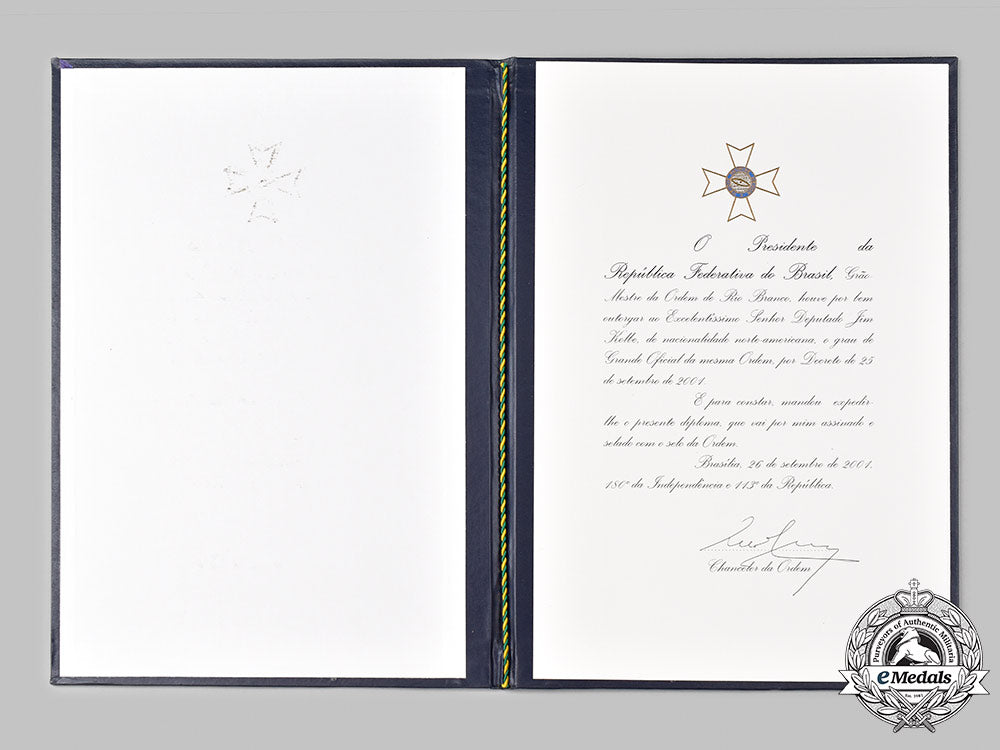 O Presidente da
República Federativa do Brasil, Grão-
Mestre da Ordem de Rio Branco, houve por bem
outorgar ao Excelentíssimo Senhor Deputado Jim
Kolbe, de nacionalidade norte-americana, o grau de
Grande Oficial da mesma Ordem, por Decreto de 25
de setembro de 2001.
E para constar, mandou expedir-
lhe o presente diploma, que vai por mim assinado e
selado com o selo da Ordem.
Brasília, 26 de setembro de 2001,
180º da Independência e 113º da República.
Chanceler da Ordem
Purveyors of Authentic Militaria
eMedals